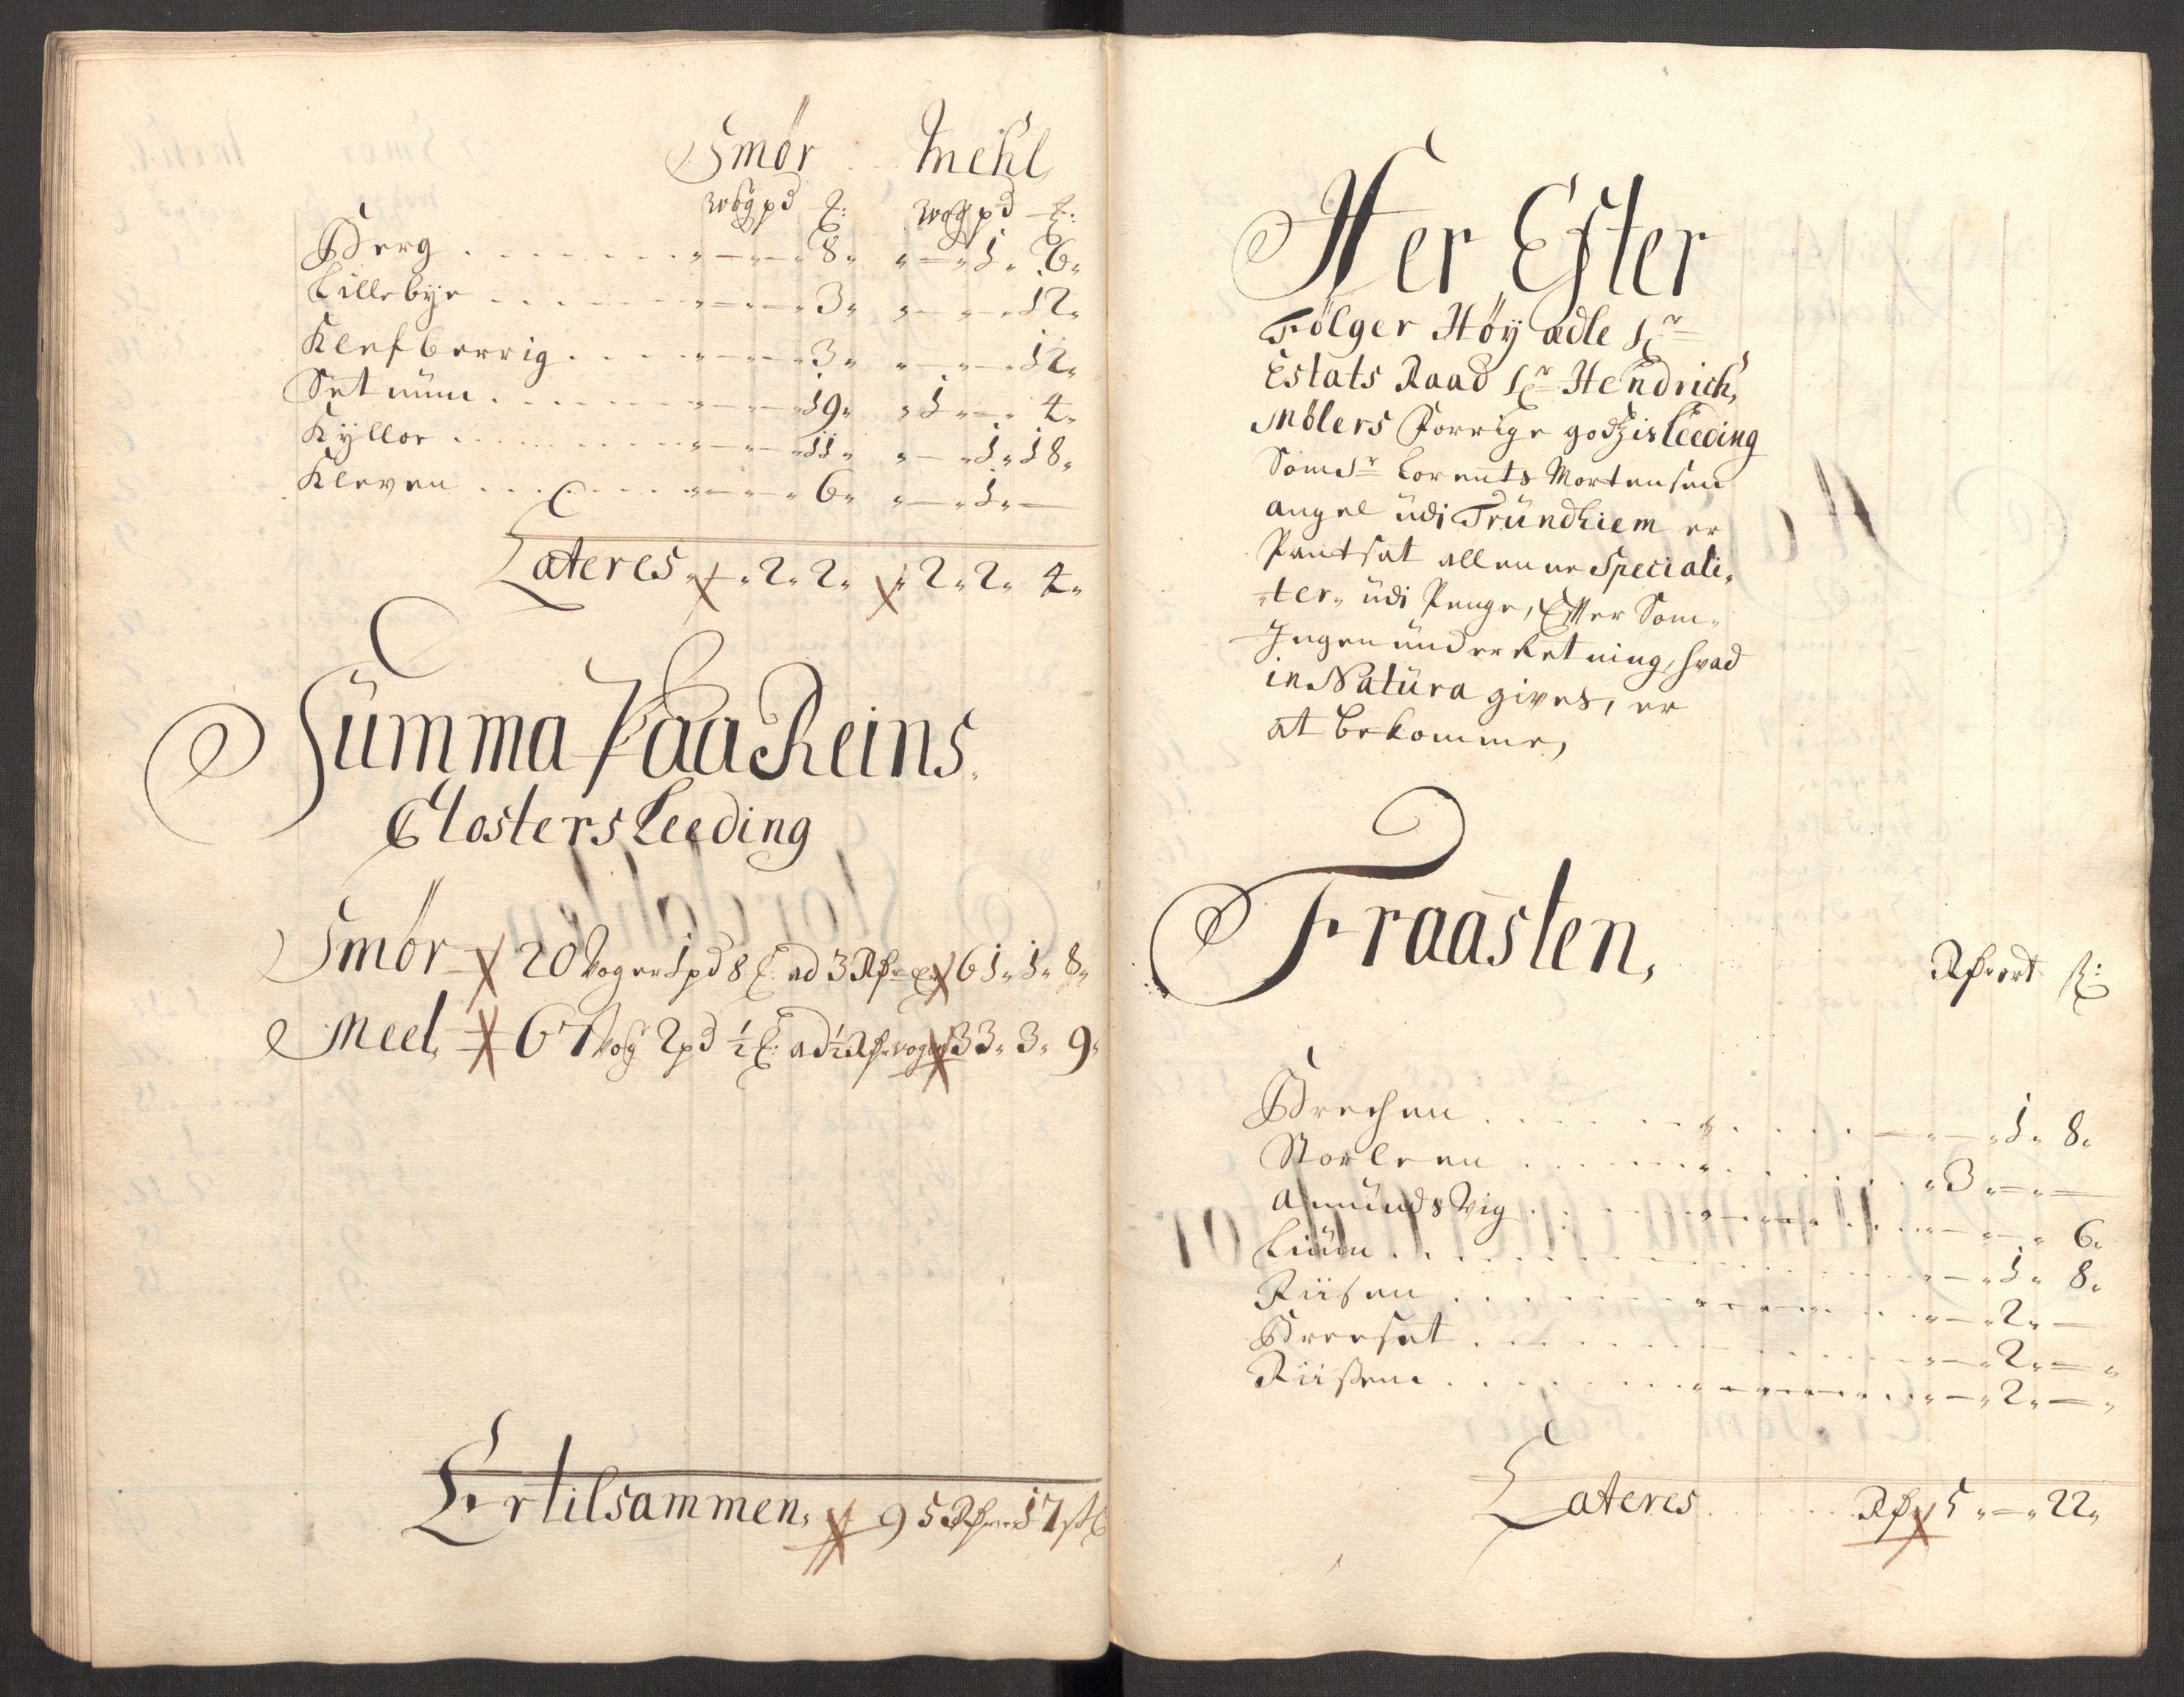 Smör Mehl
wog pd ℔: wog pd ℔:
Berg . . . . . „ — „ — „ 8„ „ — „ 1„ 6„
Lillebye . . . . „ — „ — „ 3„ „ — „ — „ 12„
Klefberrig . . . . „ — „ — „ 3„ „ — „ — „ 12„
Setnum . . . . „ — „ — „ 19„ „ 1„ — „ 4„
Kylloe . . . . „ — „ — „ 11„ „ — „ 1„ 18„
Kleven . . . . „ — „ — „ 6„ „ — „ 1„ —
Lateres „ — „ 2„ 2„ „ 2„ 2„ 4„
Summa Paa Reins
Closters Leeding
Smör 20 Woger 1 pd 8 ℔: ad 3 Rdr 61„ 1„ 8„
Meel, 67 Wog 2 pd ½ ℔: ad ½ Rdr wogen 33„ 3„ 9„
Er tilsammen, 95 Rdr „ 17 s
Her Efter
Fölger Höy ædle Hr
Estats Raad Hr Hendrich
Mölers Forrige godzis Leeding
Som Sr Lorents Mortensen
angel udi Trundhiem er
Pantsat allene Speciali„
„ter„ udi Penge, Efter Som„
Ingen underretning, hvad
in Natura gives, er
at bekomme,
Fraasten,
Rdr ort s:
Brechen . . . . — „ — „ 1„ 8„
Storleen . . . . „ 3 „ — „ —
Amunds Vig . . . . — „ — „ 6„
Lium . . . . „ — „ 1„ 8„
Riisen . . . . „ — „ 2„ —
Breeset . . . . „ — „ 2„ — „
Riissene . . . . „ — „ 2„ — „
Lateres . . . Rdr 5 „ — „ 22„